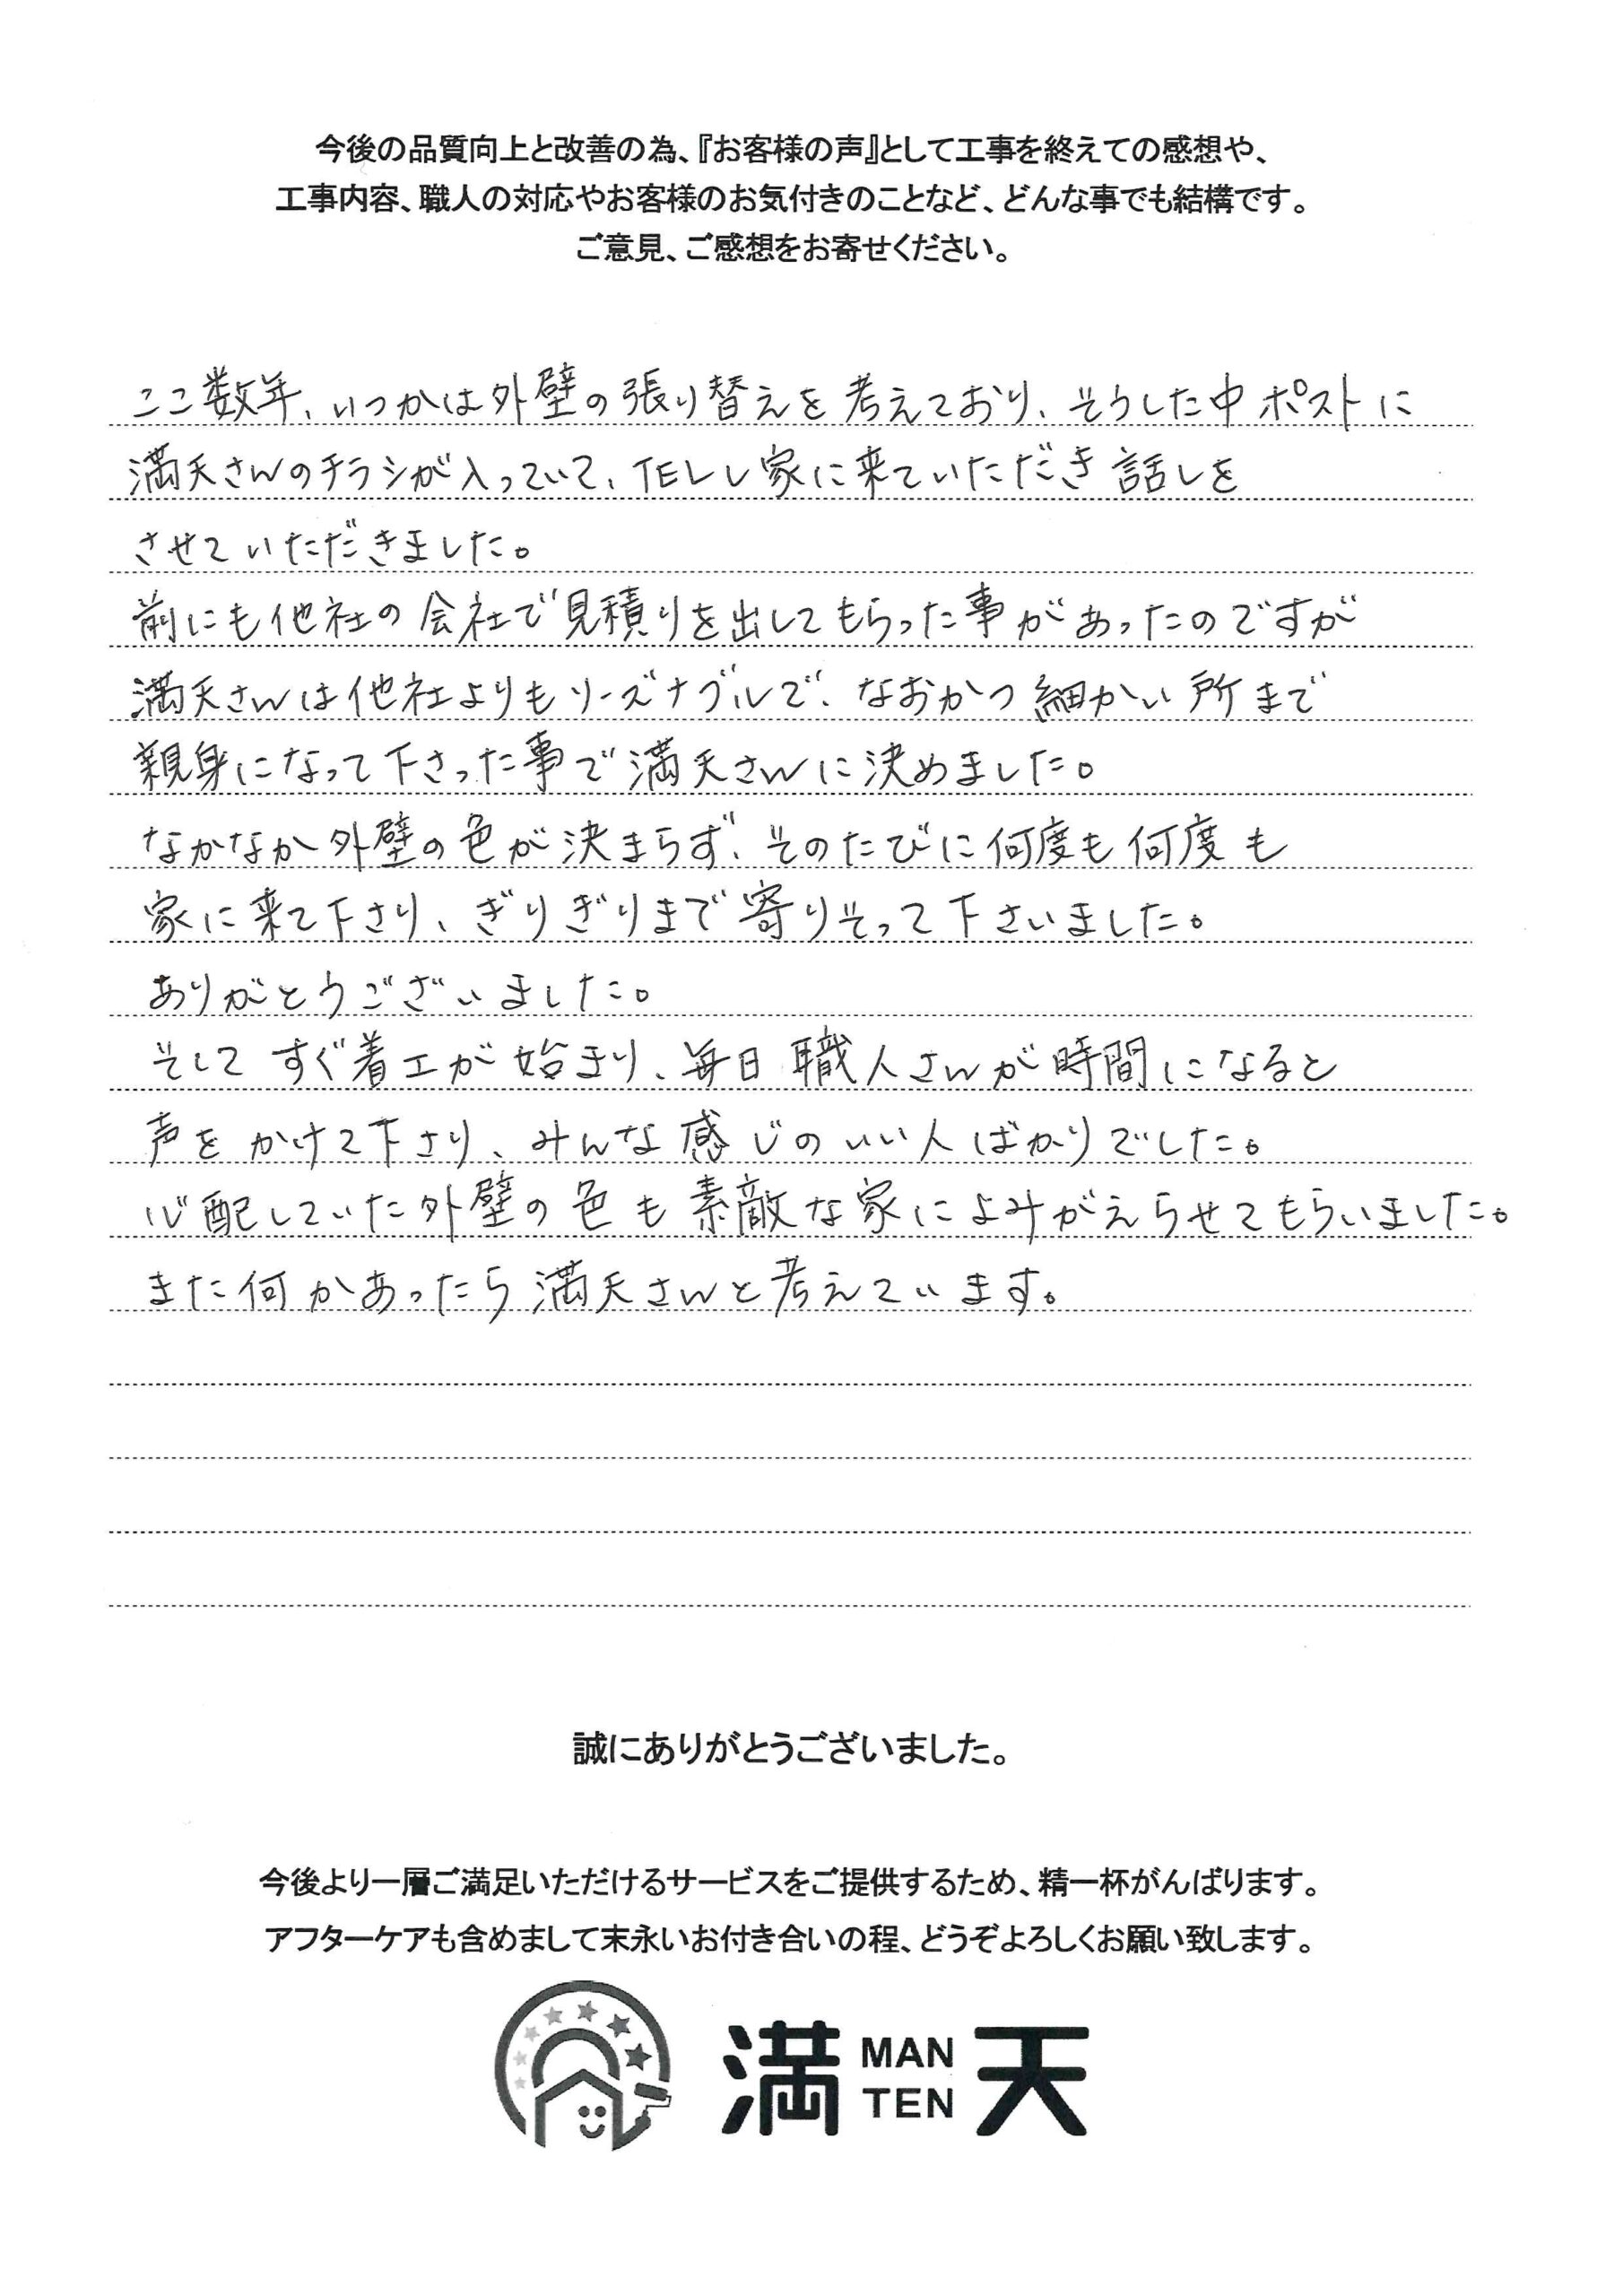 今後の品質向上と改善の為、『お客様の声』として工事を終えての感想や、
工事内容、職人の対応やお客様のお気付きのことなど、どんな事でも結構です。
ご意見、ご感想をお寄せください。
ここ数年、いつかは外壁の張り替えを考えており、そうした中ポストに
満天さんのチラシが入っていて、TELし家に来ていただき話しを
させていただきました。
前にも他社の会社で見積りを出してもらった事があったのですが
満天さんは他社よりもリーズナブルで、なおかつ細かい所まで
親身になって下さった事で満天さんに決めました。
なかなか外壁の色が決まらず、そのたびに何度も何度も
家に来て下さり、ぎりぎりまで寄りそって下さいました。
ありがとうございました。
そしてすぐ着工が始まり、毎日職人さんが時間になると
声をかけて下さり、みんな感じのいい人ばかりでした。
心配していた外壁の色も素敵な家によみがえらせてもらいました。
また何かあったら満天さんと考えています。
誠にありがとうございました。
今後より一層ご満足いただけるサービスをご提供するため、精一杯がんばります。
アフターケアも含めまして末永いお付き合いの程、どうぞよろしくお願い致します。
満 MAN TEN 天